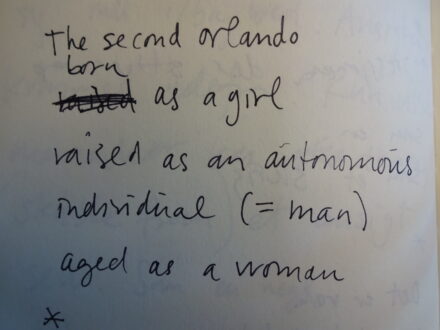 The second orlando
born
raised as a girl
raised as an autonomous
individual (= man)
aged as a woman
*